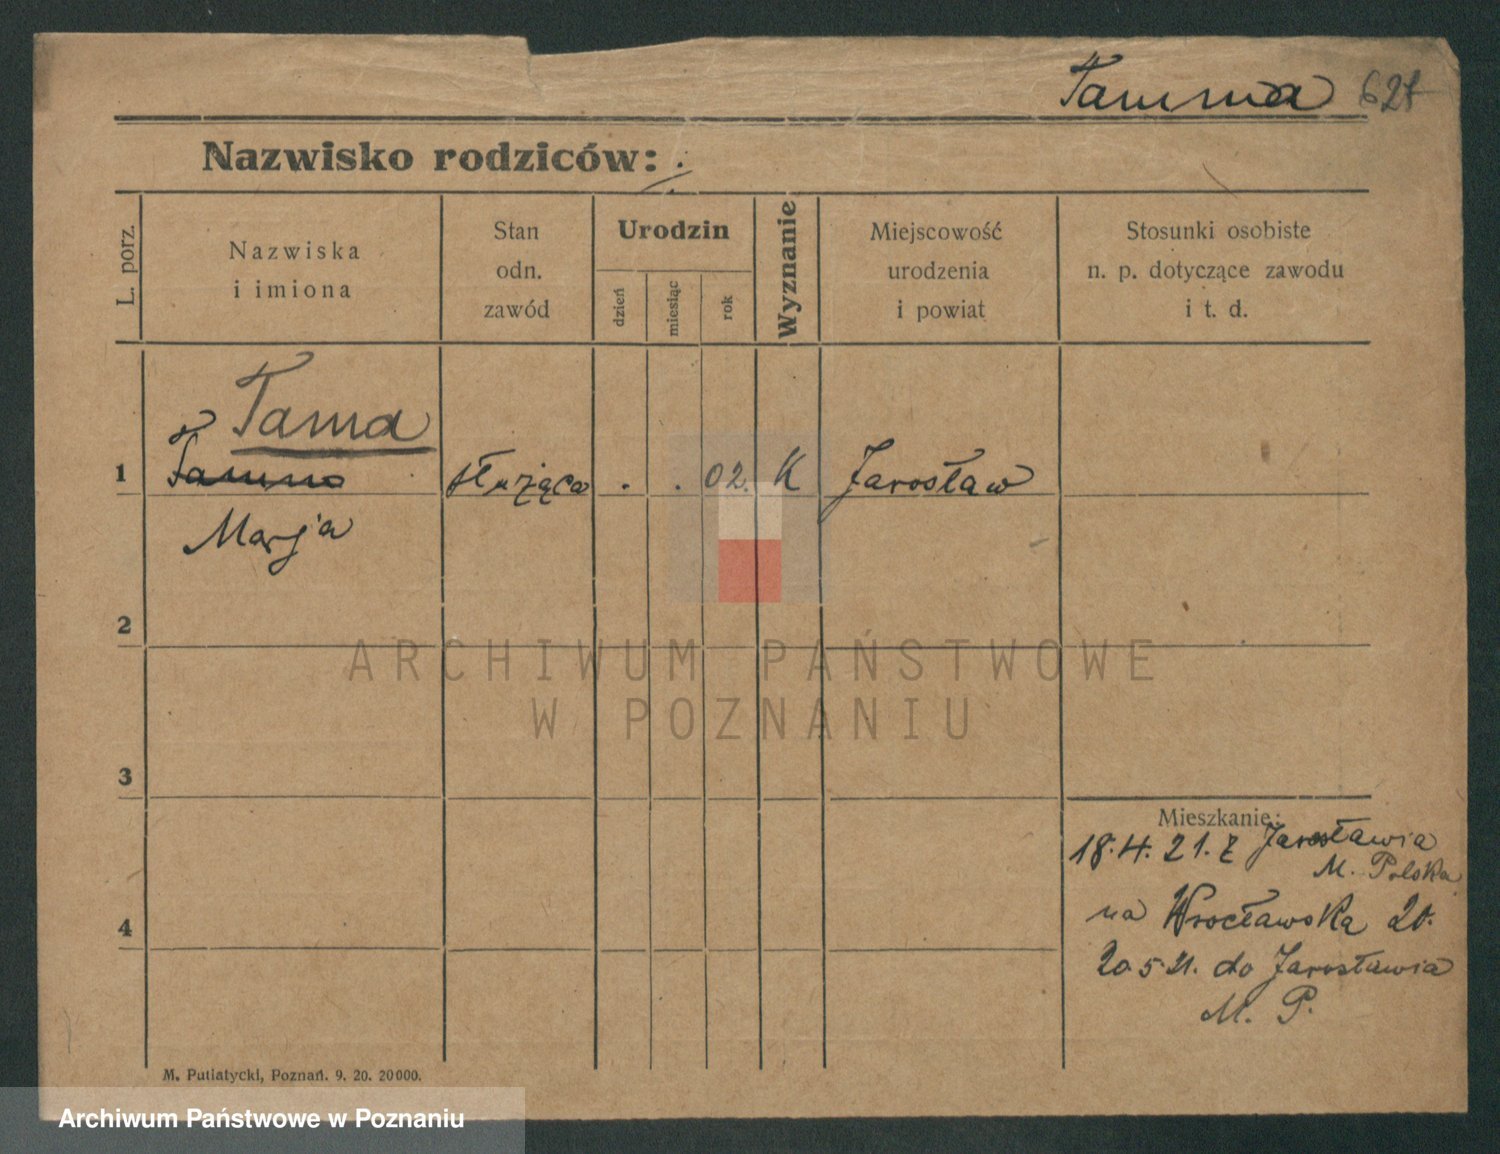 Tamma 621
Nazwisko rodziców:
L. porz.
Nazwiska
i imiona
Stan
odn.
zawód
Urodzin
dzień
miesiąc
rok
Wyznanie
Miejscowość
urodzenia
i powiat
Stosunki osobiste
n. p. dotyczące zawodu
i t. d.
Tama
1 służąca . . 02. K Jarosław
Marja
2
3
4
Mieszkanie:
18.4.21. z Jarosławia
M. Polska
na Wrocławską
20.5.21. do Jarosławia
M. P.
M. Putiatycki, Poznań. 9. 20. 20000.
ARCHIWUM PAŃSTWOWE
W POZNANIU
Archiwum Państwowe w Poznaniu